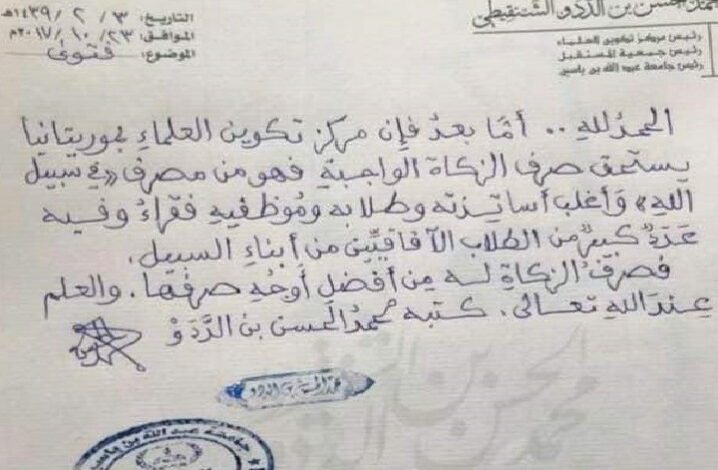 محمد الحسن بن الددو الشنقيطي
رئيس مركز تكوين العلماء
رئيس جمعية المستقبل
رئيس جامعة عبد الله بن ياسين
التاريخ: ٣ / ٢ / ١٤٣٩هـ
الموافق: ٢٣ / ١٠ / ٢٠١٧م
الموضوع: فتوى
الحمدُ للهِ .. أمَّا بعدُ فإن مركز تكوين العلماءِ بموريتانيا
يستحق صرف الزكاة الواجبةِ فهو من مصرف «في سبيل
اللهِ» وَأغلب أساتذته وطلابه ومُوظفيهِ فقراءُ وفيه
عَدَدٌ كبيرٌ من الطلاب الآفاقيِّين من أبناءِ السبيل.
فصرفُ الزكاةِ له مِن أفضلِ أوجُهِ صرفها. والعلم
عِندَ اللهِ تعالى. كتبه محمدُ الحسن بن الدَّدَوْ
محمد الحسن بن الددو
جامعة عبد الله بن ياسين
محمد الحسن بن الددو